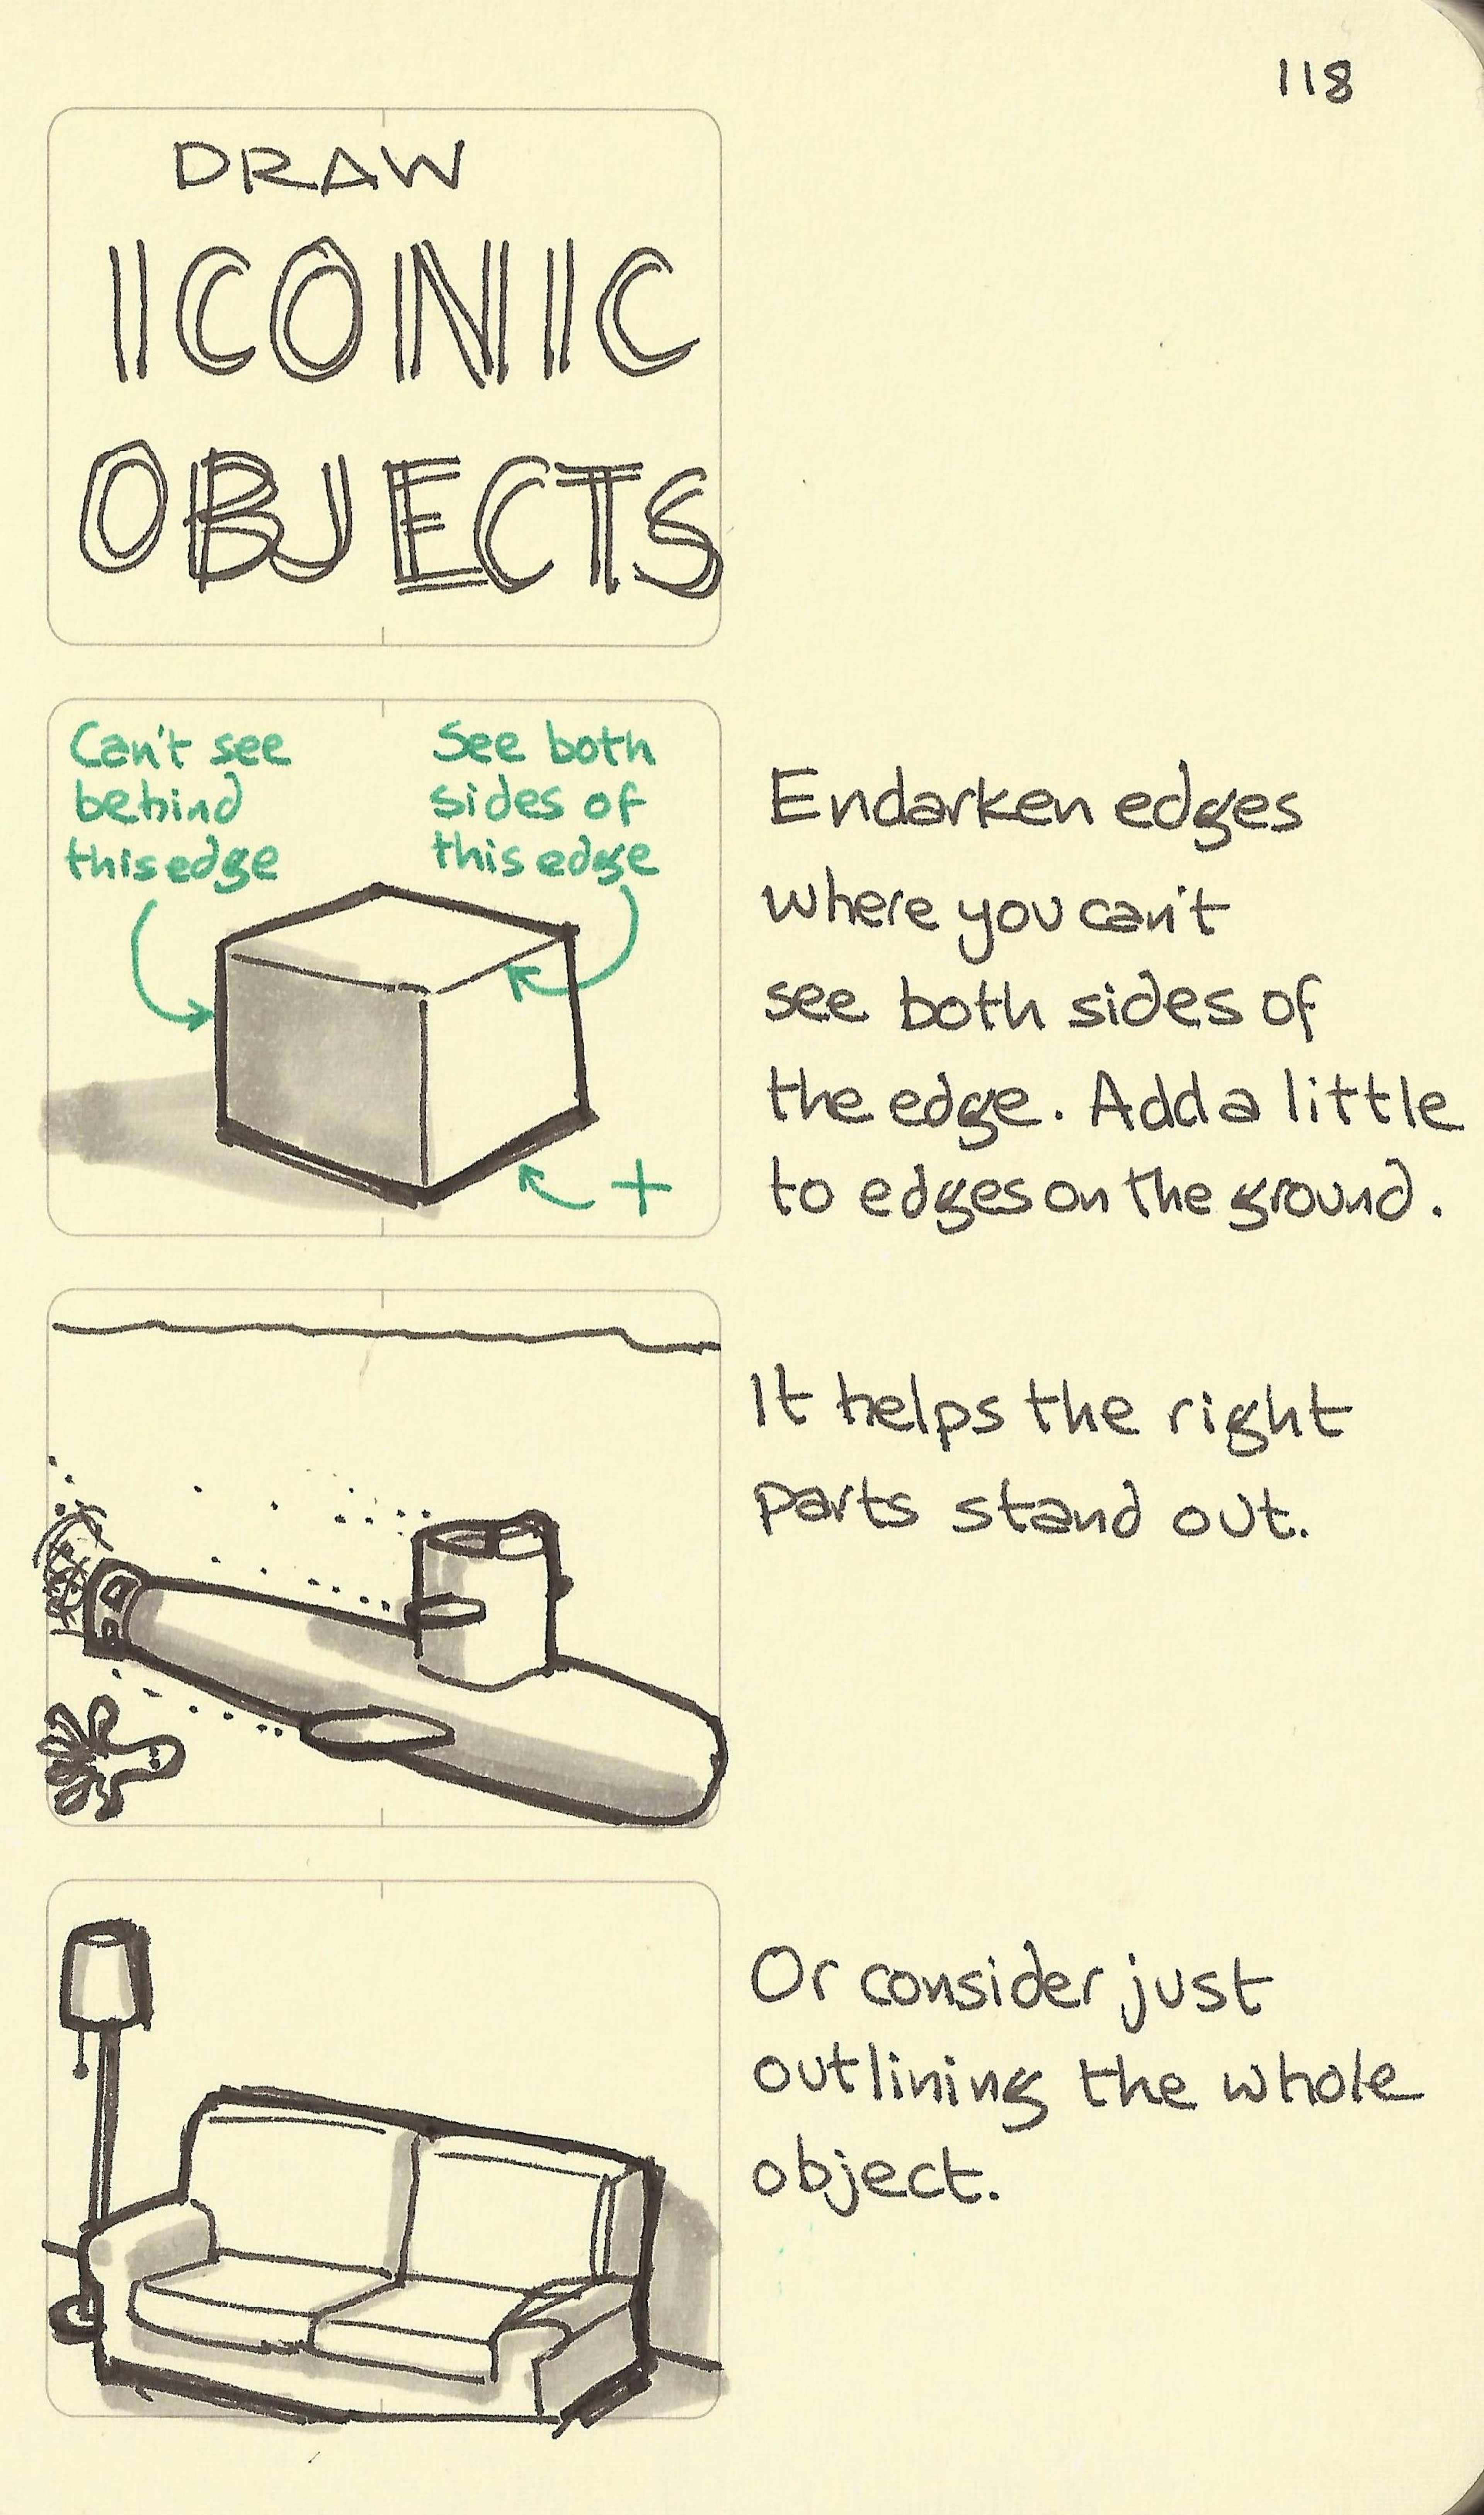 118
DRAW
ICONIC
OBJECTS
Can't see
behind
this edge
See both
sides of
this edge
+
Endarken edges
where you can't
see both sides of
the edge. Add a little
to edges on the ground.
It helps the right
parts stand out.
Or consider just
outlining the whole
object.